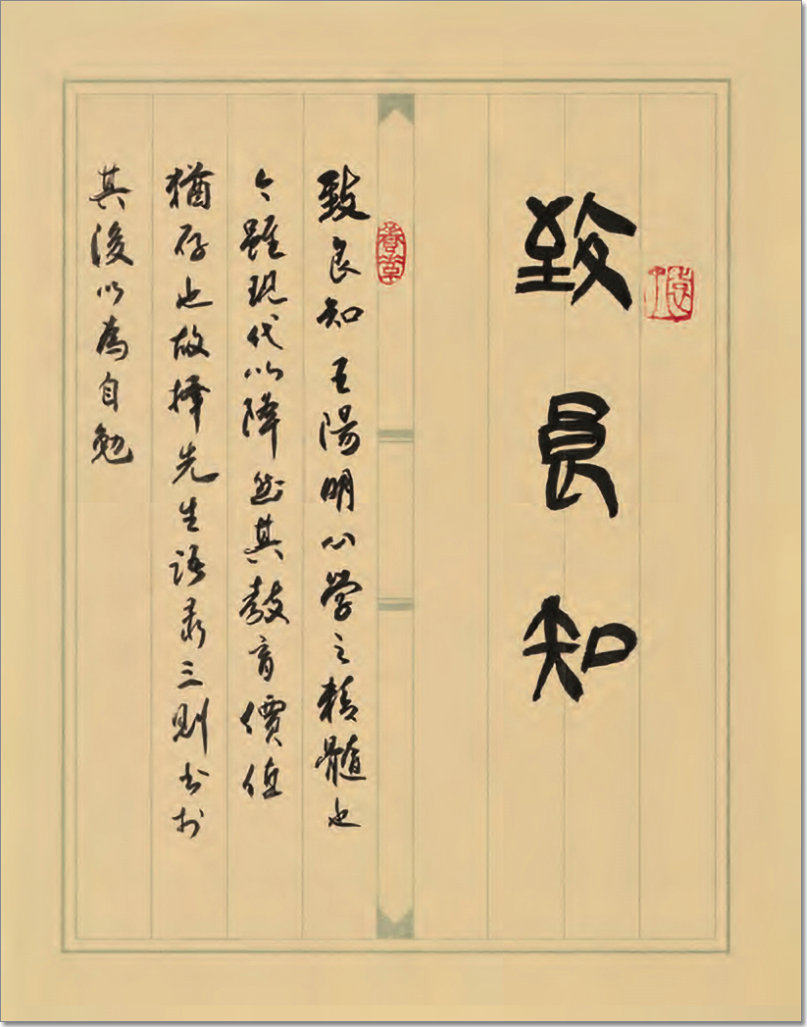 致良知
致良知王陽明心學之精髓也
今雖現代以降然其教育價值
猶存也故擇先生語录三則书於
其後以為自勉